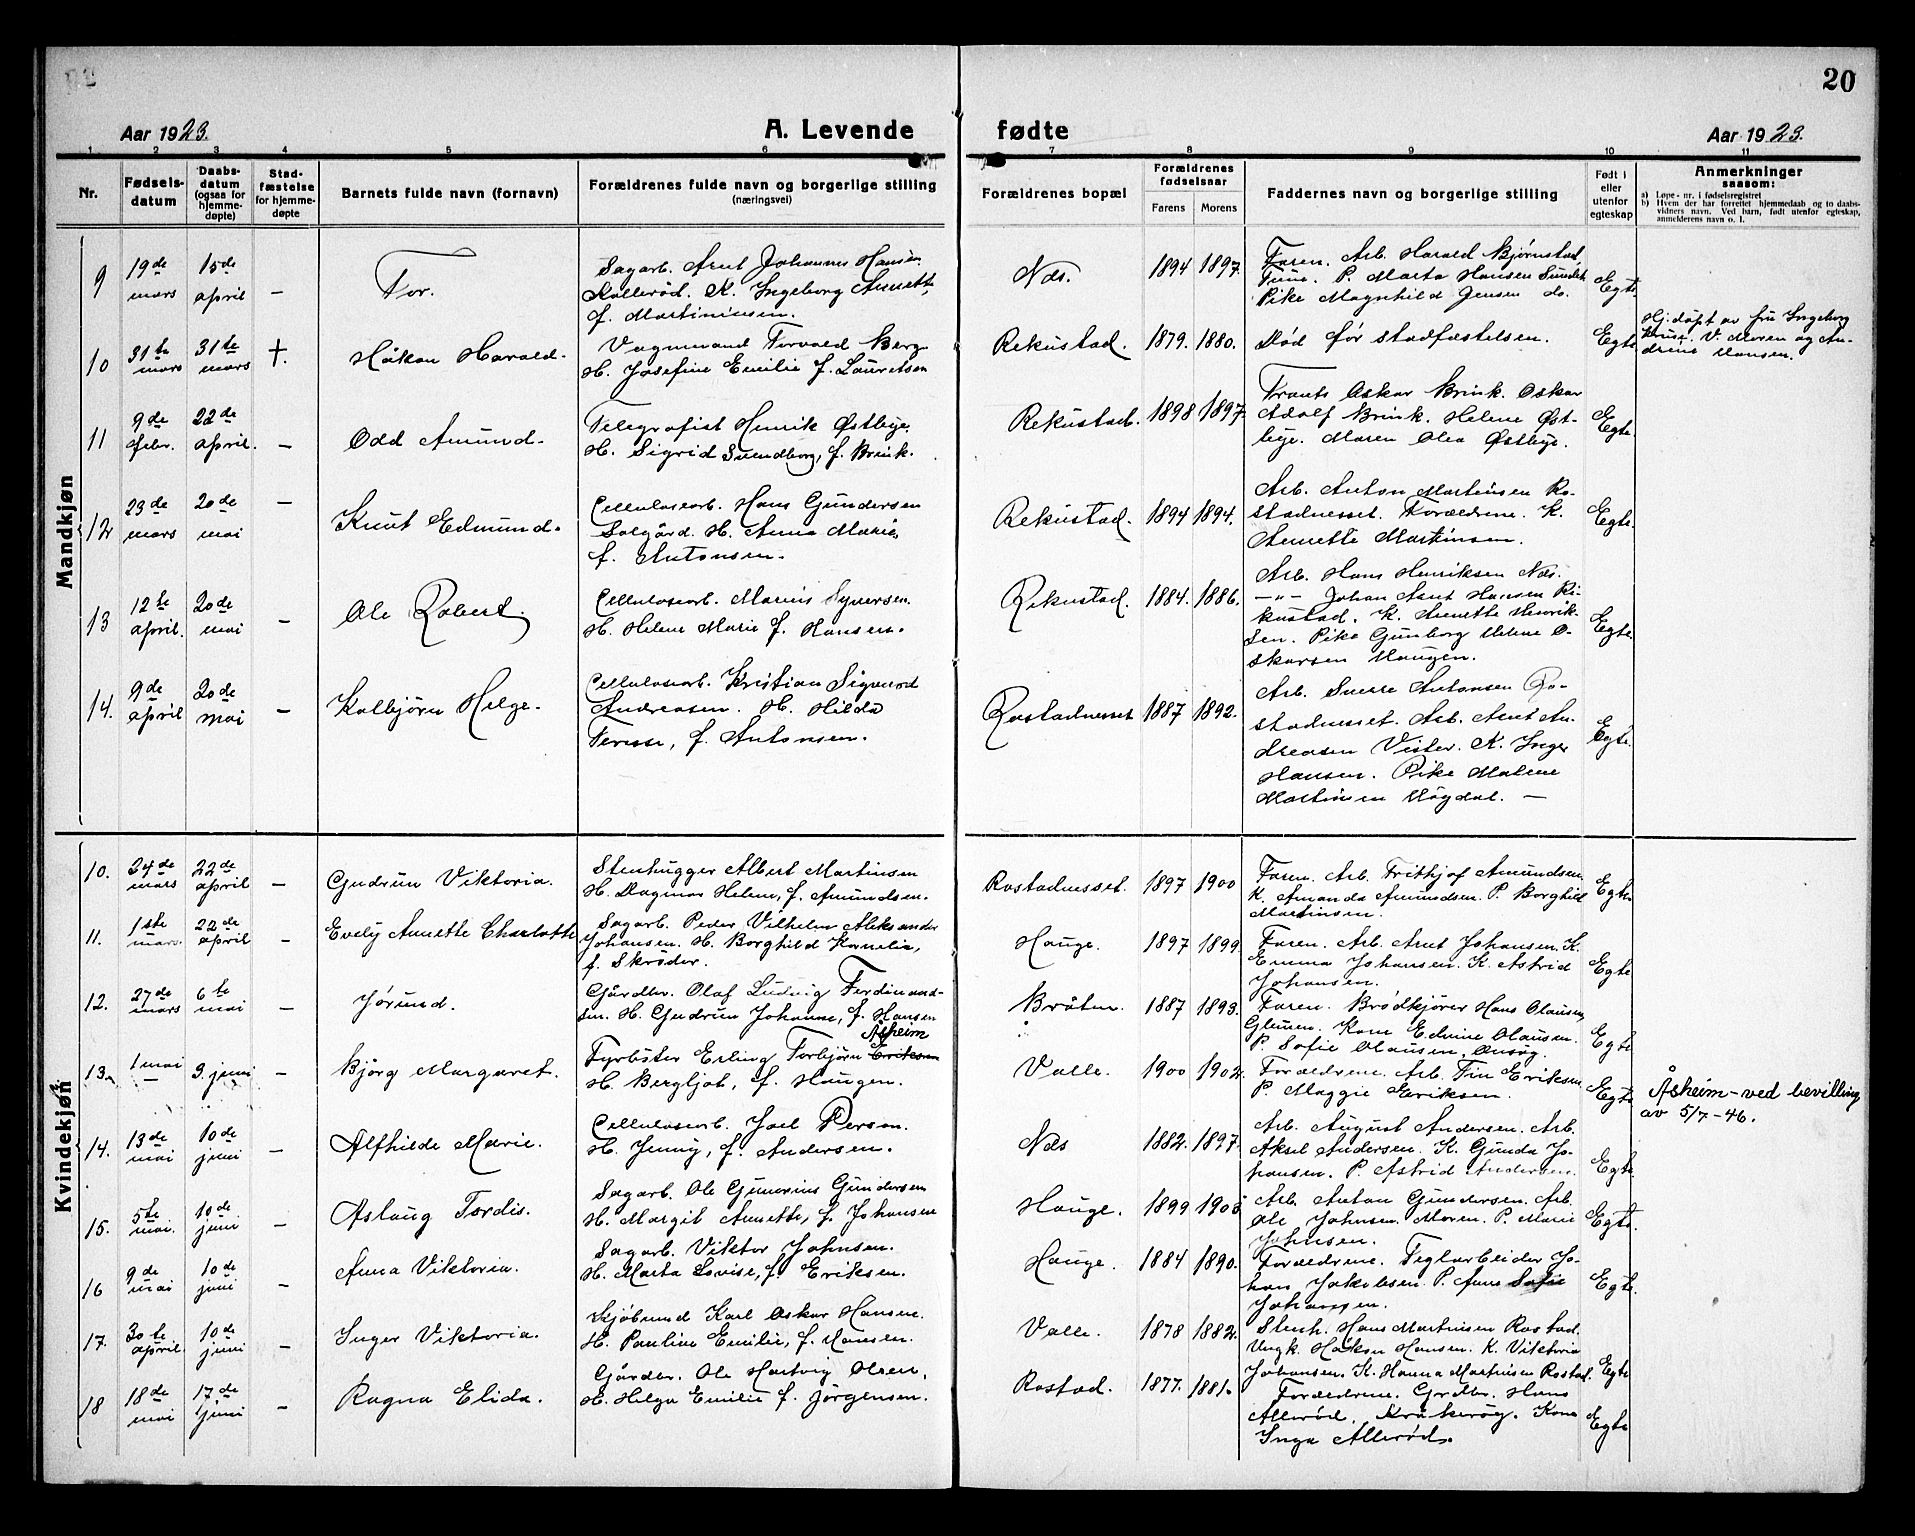 20
Aar 1923.
A. Levende
fødte
Aar 1923.
1 2 3 4 5 6 7 8 9 10 11
Nr.
Fødsels-
datum
Daabs-
datum
(ogsaa for
hjemme-
døpte)
Stad-
fæstelse
for hjemme-
døpte
Barnets fulde navn (fornavn)
Forældrenes fulde navn og borgerlige stilling
(næringsvei)
Forældrenes bopæl
Forældrenes
fødselsaar
Farens. Morens
Faddernes navn og borgerlige stilling
Født i
eller
utenfor
egteskap
Anmerkninger
saasom:
a) Løpe-nr. i fødselsregistret
b) Hvem der har forrettet hjemmedaab og to daabs-
vidners navn. Ved barn, født utenfor egteskap,
anmelderens navn o. l.
Mandkjøn
9
19de
mars
15de
april
-
Tor.
Sagarb. Arnt Johannes Hansen
Kallerød. K. Ingeborg Annette,
f. Martinusen.
Næs.
1894 1897.
Faren. Arb. Harald Bjørnstad,
Tune. P. Marta Hansen Sundet.
Pike Magnhild Jensen do.
Egte.
10
31te
mars
31te
mars
†.
Håkon Harald.
Vognmand Torvald Berg
H. Josefine Emilie f. Lauretsen
Rekustad.
1879. 1880.
Død før stadfæstelsen.
Egte
Hj.døpt av fru Ingeborg
Kruse. V. Moren og An-
drine Hansen.
11
9de
febr.
22de
april.
-
Odd Amund.
Telegrafist Henrik Østbye.
H. Sigrid Svendborg, f. Brink.
Rekustad.
1898 1897.
Frants Oskar Brink. Oskar
Adolf Brink. Helene Øst-
bye. Maren Olea Østbye.
Egte.
12
23de
mars
20de
mai
-
Knut Edmund.
Cellulosearb. Hans Gundersen
Solgård. H. Anna Marie,
f. Antonsen.
Rekustad.
1894 1894.
Arb. Anton Martinsen Ro-
stadnesset. Forældrene. K.
Annette Martinsen.
Egte.
13
12te
april.
20de
mai
-
Ole Robert.
Cellulosearb. Marius Syversen.
H. Helene Marie f. Hansen.
Rekustad.
1884. 1886.
Arb. Hans Henriksen Næs.
-"- Johan Arnt Hansen Re-
kustad. K. Annette Henrik-
sen. Pike Gunborg Helene O-
skarsen Haugen.
Egte.
14.
9de
april
20de
mai
-
Kolbjørn Helge.
Cellulosearb. Kristian Sigvard
Andreasen. H. Hilda
Terese, f. Antonsen.
Rostadnesset
1887 1892.
Arb. Sverre Antonsen Ro-
stadnesset. Arb. Arnt An-
dreasen Vister. K. Inger
Hansen. Pike Malene
Martinsen Høgdal. -
Egte.
Kvindekjøn
10.
24de
mars
22de
april
-
Gudrun Viktoria.
Stenhugger Albert Martinsen
H. Dagmar Helene, f. Amundsen.
Rostadnesset.
1897 1900
Faren. Arb. Frithjof Amundsen.
K. Amanda Amundsen. P. Borghild
Martinsen.
Egte
11.
1ste
mars
22de
april
-
Evely Annette Charlotte
Sagarb. Peder Vilhelm Aleksander
Johansen. H. Borghild Kornelia,
f. Skrøder.
Hauge.
1897 1899
Faren. Arb. Arnt Johansen. K.
Emma Johansen. K. Astrid
Johansen.
Egte
12.
27de
mars
6te
mai
-
Jørund.
Gårdbr. Olaf Ludvig Ferdinand-
sen. H. Gudrun Johanne, f. Hansen
Bråten
1887 1893.
Faren. Brødkjører Hans Olausen,
Glensen. Kone Edvine Olausen.
P. Sofie Olausen,
Egte
13.
1 mai
-
3. juni
-
Bjørg Margaret.
Åsheim
Fyrbøter Erling Torbjørn Eriksen
H. Bergljot, f. Haugen.
Valle.
1900 1902.
Forældrene. Arb. Tin Eriksen
P. Maggie Eriksen.
Egte
Åsheim - ved bevilling
av 5/7-46.
14.
13de
mai
10de
juni
-
Alfhilde Marie.
Cellulosearb. Joel Person.
H. Jenny, f. Andersen.
Næs
1882. 1897.
Arb. August Andersen. Arb.
Aksel Andersen. K. Gunda Jo-
hansen. P. Astrid Andersen.
Egte
15.
5te
mai.
10de
juni
-
Aslaug Tordis.
Sagarb. Ole Gunerius Gundersen
H. Margit Annette, f. Johansen
Hauge.
1899 1903
Arb. Anton Gundersen. Arb.
Ole Johnsen. Moren. P. Marie
Johnsen.
Egte.
16
9de
mai
10de
juni
-
Anna Viktoria.
Sagarb. Viktor Johnsen.
H. Marta Lovise, f. Eriksen.
Hauge.
1884 1890.
Forældrene. Teglarbeider Jo-
han Jakobsen. P. Anna Sofie
Johansen.
Egte.
17.
30te
april.
10de
juni
-
Inger Viktoria.
Kjøbmand Karl Oskar Hansen.
H. Pauline Emilie, f. Hansen.
Valle.
1878 1882.
Stenh. Hans Martinsen Rostad.
Ungk. Håkon Hansen. K. Viktoria
Johansen. K. Hanna Martinsen Rostad.
Egte
18
18de
mai
17de
juni
-
Ragna Elida.
Gårdbr. Ole Hartvig Olsen.
H. Helga Emilie f. Jørgensen.
Rostad.
1877. 1881.
Forældrene. Grdbr. Hans
Allerød, Kråkerøy. Kone
Inga Allerød.
Egte